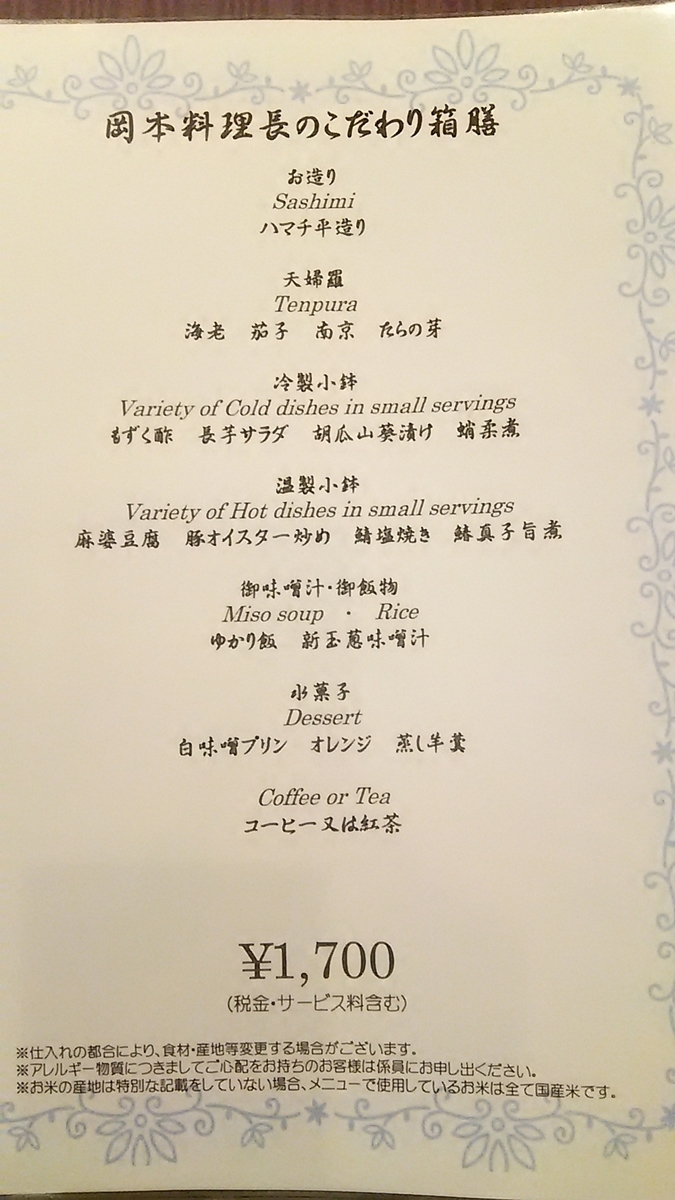 岡本料理長のこだわり箱膳
お造り
Sashimi
ハマチ平造り
天婦羅
Tenpura
海老　茄子　南京　たらの芽
冷製小鉢
Variety of Cold dishes in small servings
もずく酢　長芋サラダ　胡瓜山葵漬け　蛸柔煮
温製小鉢
Variety of Hot dishes in small servings
麻婆豆腐　豚オイスター炒め　鯖塩焼き　鰆真子旨煮
御味噌汁・御飯物
Miso soup　・　Rice
ゆかり飯　新玉葱味噌汁
水菓子
Dessert
白味噌プリン　オレンジ　蒸し羊羹
Coffee or Tea
コーヒー又は紅茶
¥1,700
(税金・サービス料含む)
※仕入れの都合により、食材・産地等変更する場合がございます。
※アレルギー物質につきましてご心配をお持ちのお客様は係員にお申し出ください。
※お米の産地は特別な記載をしていない場合、メニューで使用しているお米は全て国産米です。